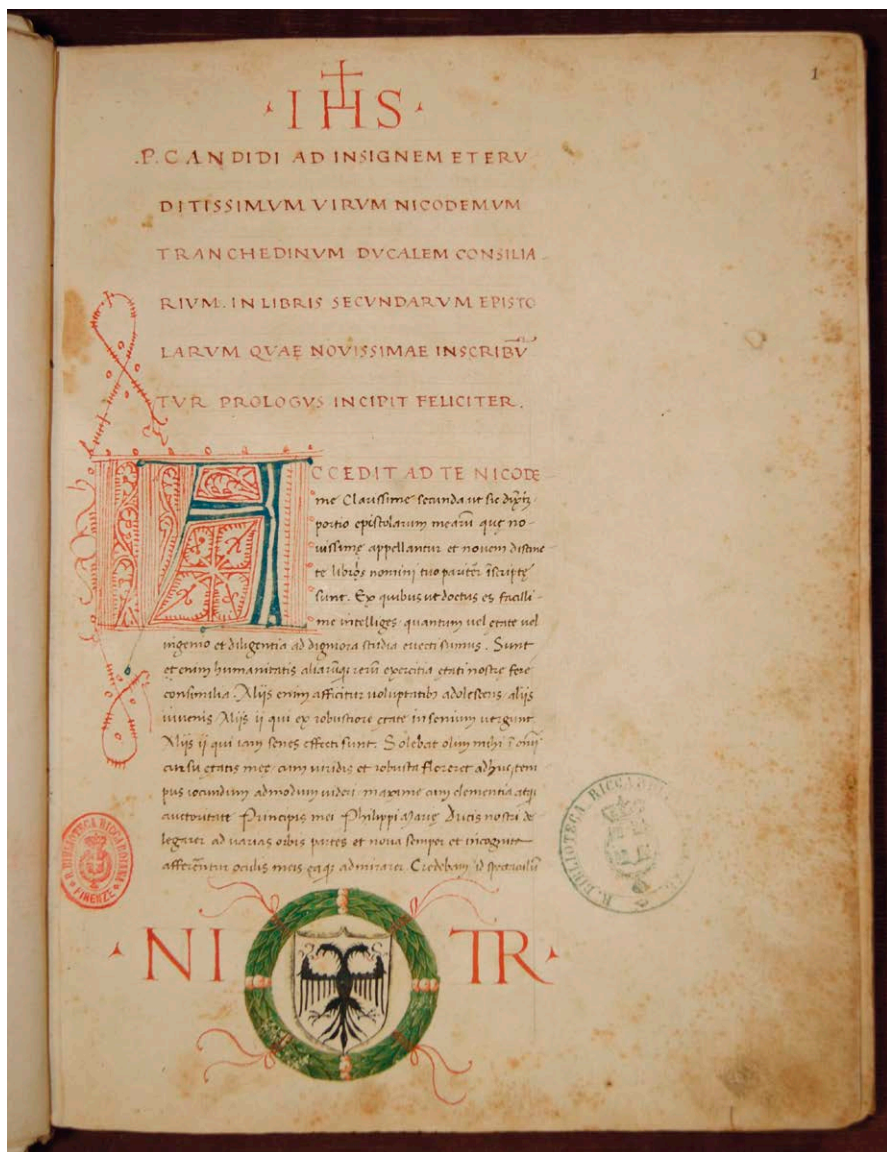 1
· IHS ·
.P. CANDIDI AD INSIGNEM ET ERV
DITISSIMVM VIRVM NICODEMVM
TRANCHEDINVM DVCALEM CONSILIA
RIVM. IN LIBRIS SECVNDARVM EPISTO
LARVM QVAE NOVISSIMAE INSCRIBV̄
TVR PROLOGVS INCIPIT FELICITER.
ACCEDIT AD TE NICODE
me Clarissime secunda ut sic
portio epistolarum mearū quę no
uissimę appellantur et nouem distinc
te libros nomini tuo pariter īscriptę
sunt. Ex quibus ut doctus es facilli
me intelliges quantum uel etate uel
ingenio et diligentia ad digniora studia euecti sumus. Sunt
et enim humanitatis aliarūqꝫ rerū exercitia ętati nostrę fere
consimilia. Alijs enim afficitur uoluptatibꝫ adolescens alijs
iuuenis Alijs ij qui ex robustiore ętate in senium uergunt
Alijs ij qui iam senes effecti sunt. Solebat olim mihi ī omī
cursu ętatis meę cum uiridis et robusta floreret adhuc, tem
pus iocundum admodum uideri maxime cum clementia atqꝫ
auctoritate Principis mei Philippi Marię Ducis nostri de
legarer ad uarias orbis partes et noua semper et incognita
afferrentur oculis meis admirarer Credebam id spectaculū
NI TR
R. BIBLIOTECA RICCARDIANA
FIRENZE
R. BIBLIOTECA